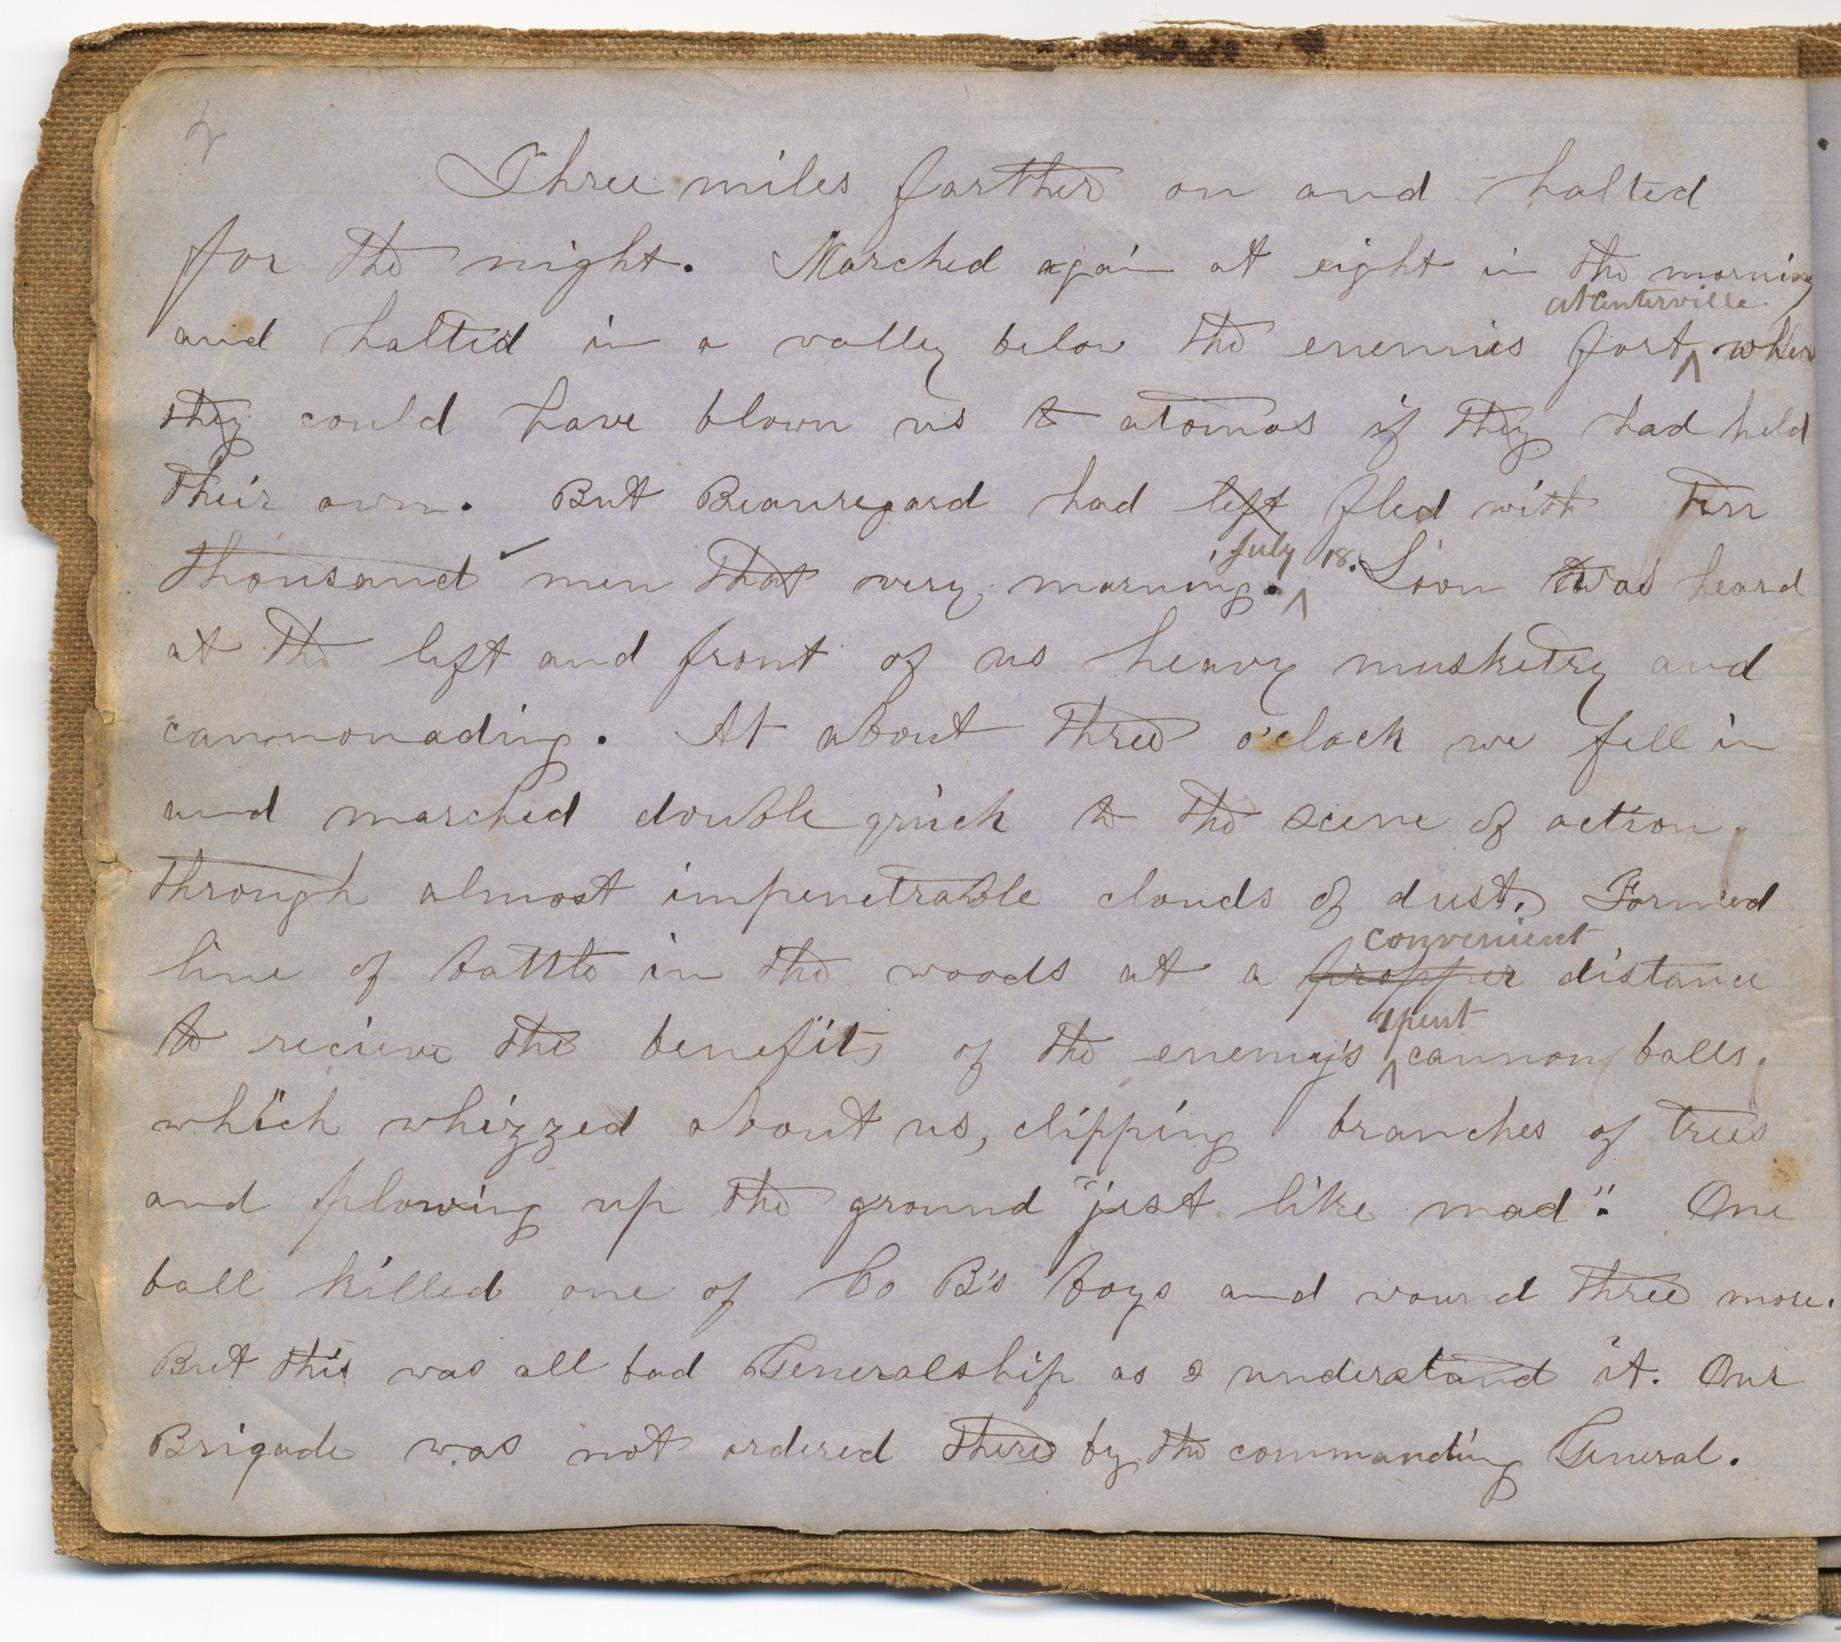 2
Three miles farther on and halted
for the night. Marched again at eight in the morning
at Centerville
and halted in a valley below the enemies fort ^ where
they could have blown us to atomos if they had held
their own. But Beauregard had left fled with Ten
thousand men that very morning. ^ July 18. Soon was heard
at the left and front of us heavy musketry and
cannonading. At about three o'clock we fell in
and marched double quick to the scene of action
through almost impenetrable clouds of dust. Formed
convenient
line of battle in the woods at a propper distance
spent
to recieve the benefits of the enemy's ^ cannon balls.
which whizzed about us, clipping branches of trees
and plowing up the ground "just like mad". One
ball killed one of Co B's boys and wound three more.
But this was all bad Generalship as I understand it. Our
Brigade was not ordered there by the commanding General.